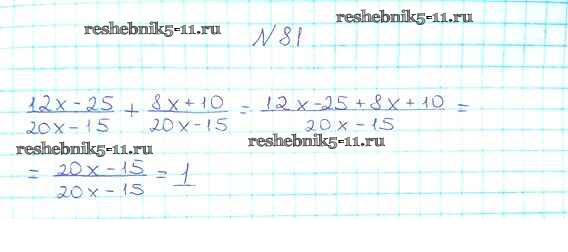 reshebnik5-11.ru
reshebnik5-11.ru
№ 81
(12x-25)/(20x-15) + (8x+10)/(20x-15) = (12x-25+8x+10)/(20x-15) =
reshebnik5-11.ru
reshebnik5-11.ru
= (20x-15)/(20x-15) = 1